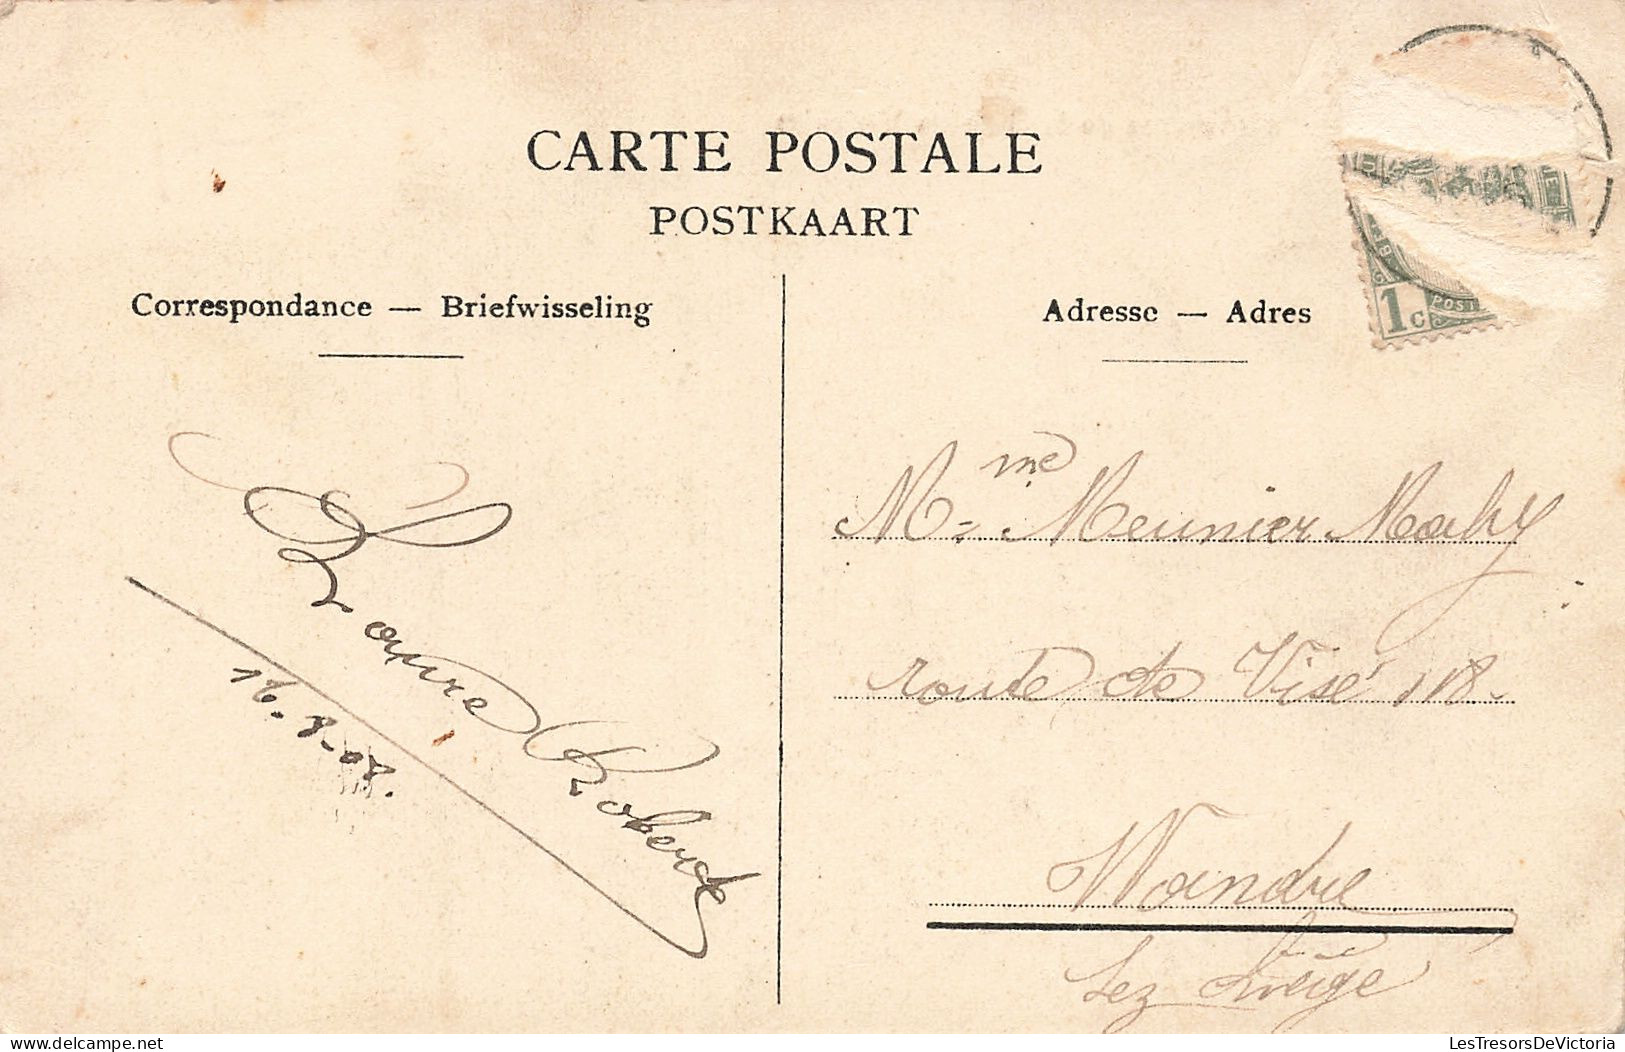 CARTE POSTALE
POSTKAART
Correspondance — Briefwisseling
Adresse — Adres
1c
POST
Mme. Meunier Mahy
route de Visé 118.
Wandre
Lez Liège
Laure Roberts
16-8-08.
LesTresorsDeVictoria
www.delcampe.net